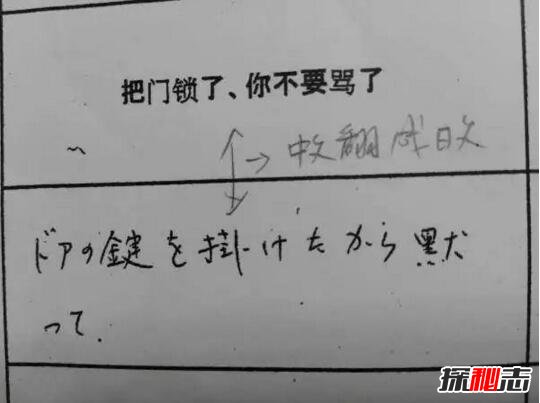 把门锁了、你不要骂了
~
→ 中文翻成日文
ドアの鍵を掛けたから黙
って.
探秘志